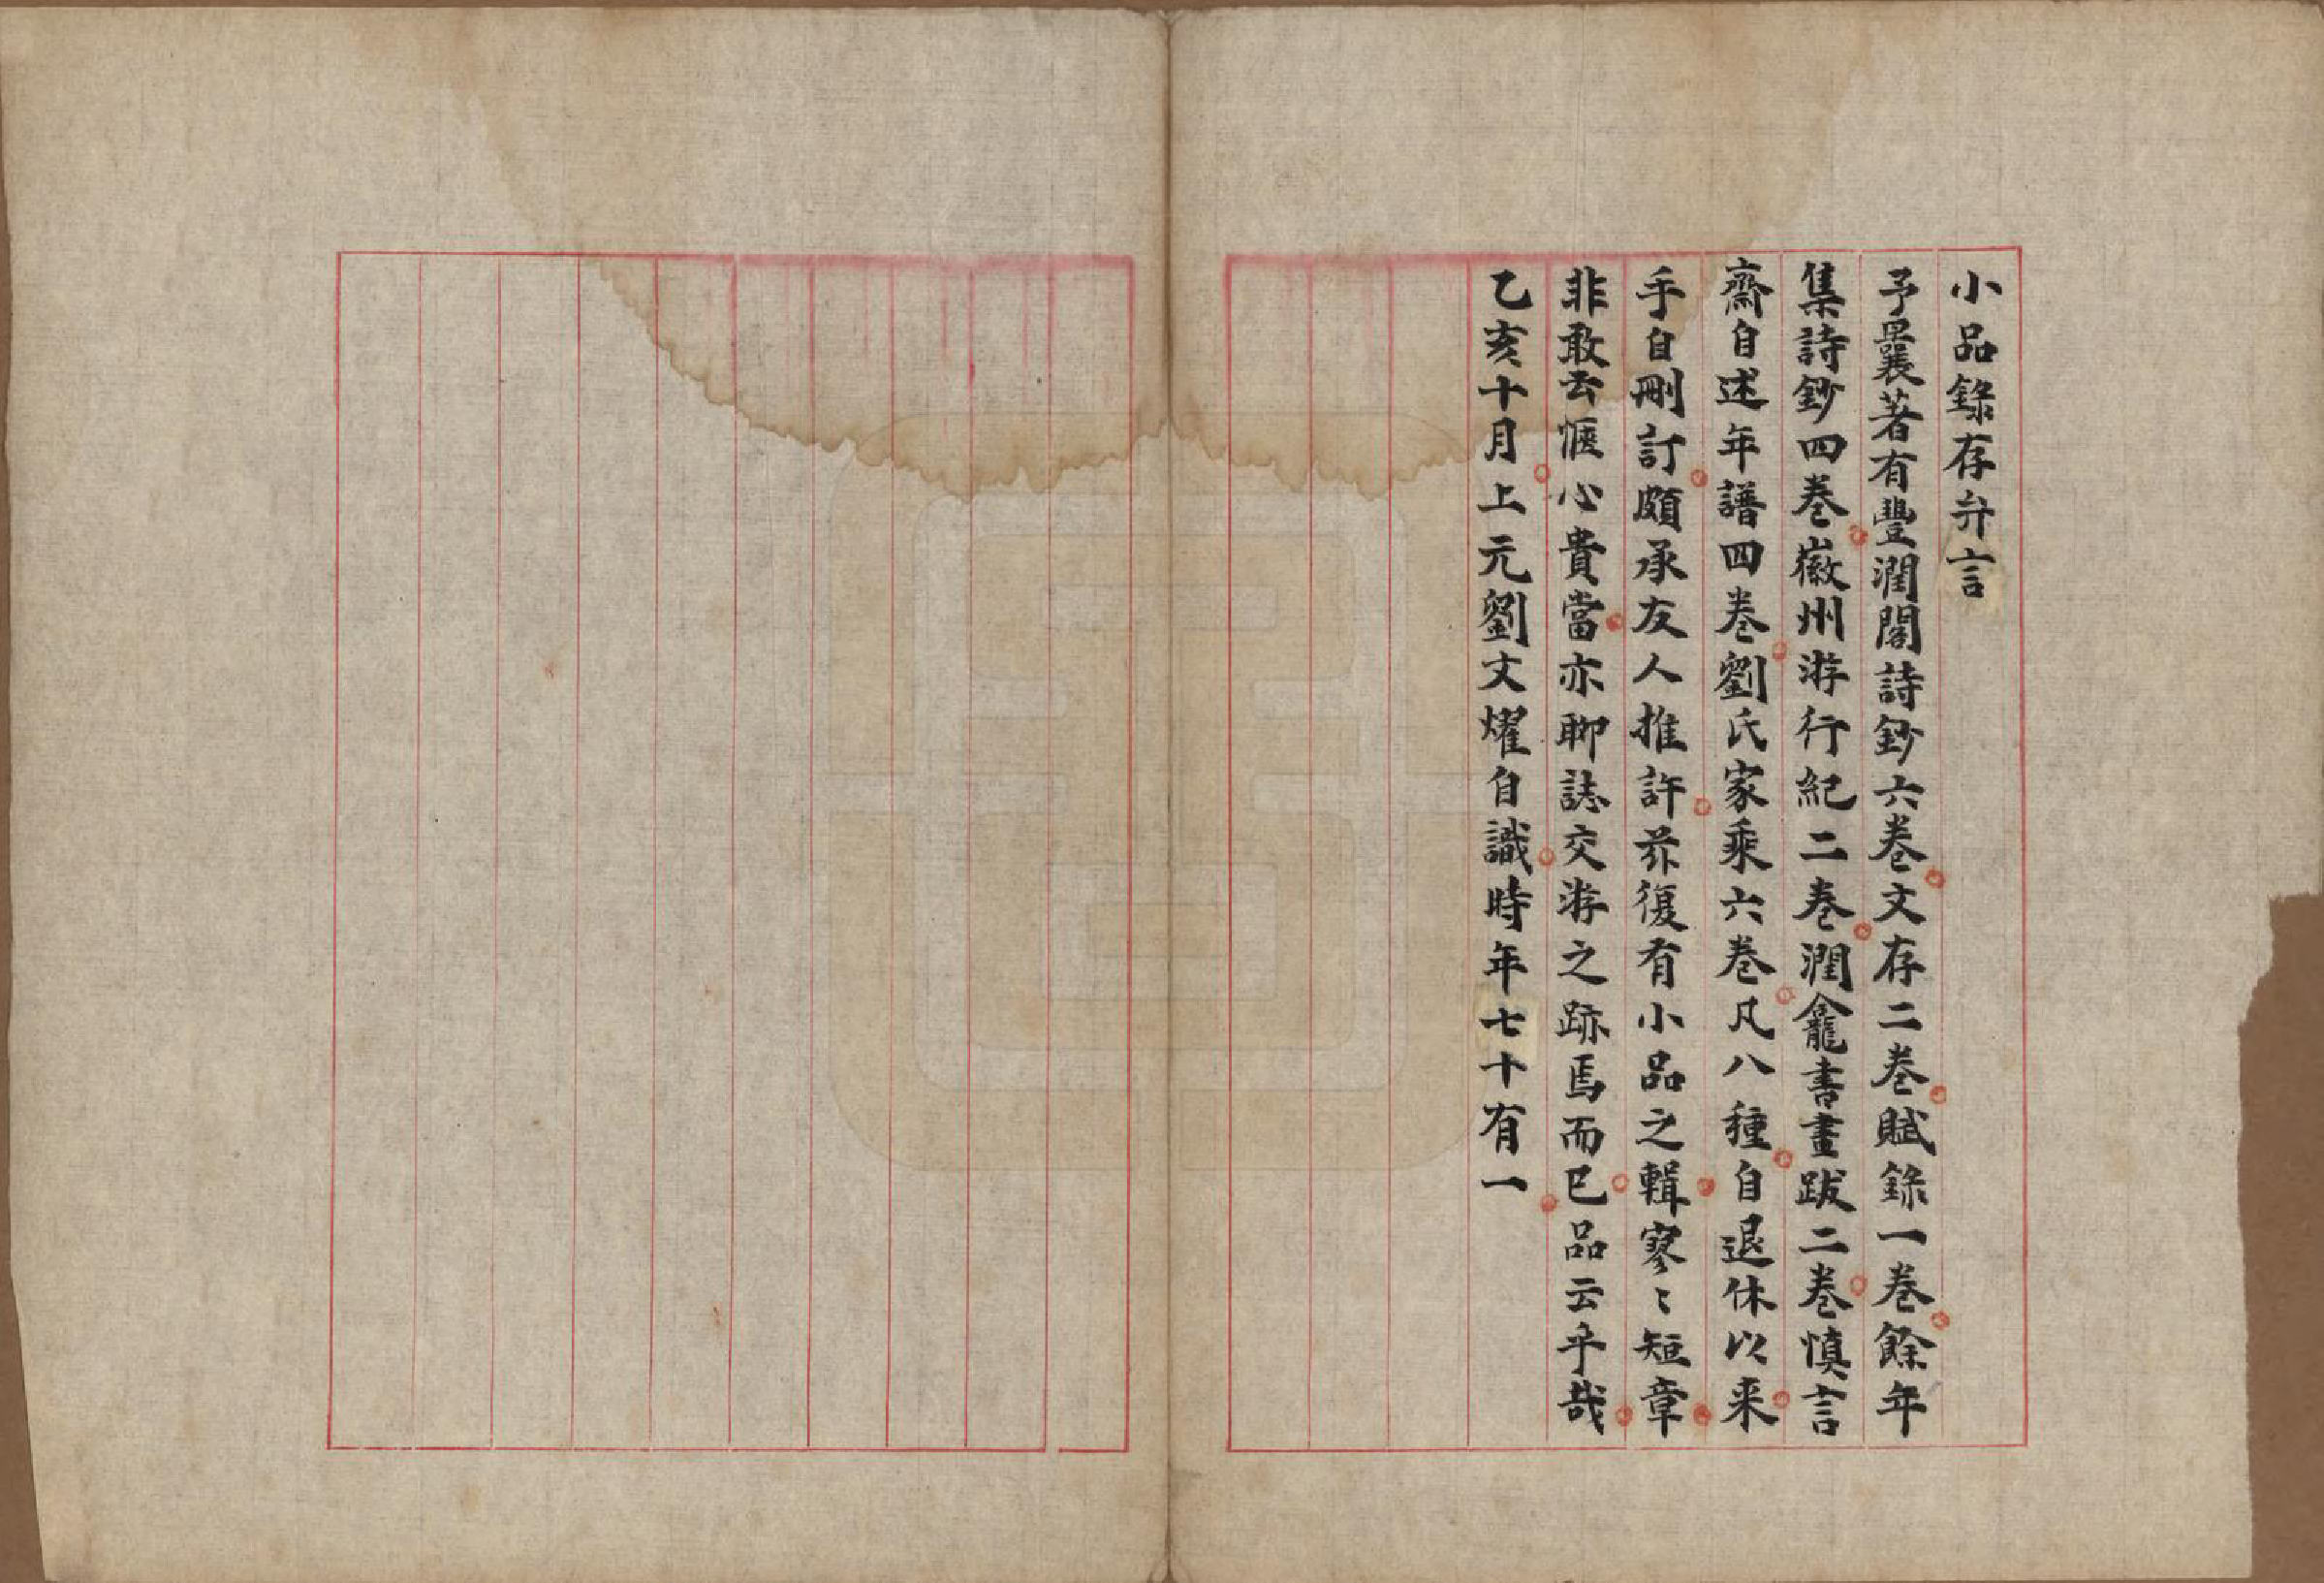 小品錄存弁言
予曩著有豐潤閣詩鈔六卷文存二卷賦錄一卷餘年
集詩鈔四卷徽州游行紀二卷潤龕書畫跋二卷慎言
齋自述年譜四卷劉氏家乘六卷凡八種自退休以来
手自刪訂頗承友人推許茲復有小品之輯寥〻短章
非敢云愜心貴當亦聊誌交游之跡焉而已品云乎哉
乙亥十月上元劉文燿自識時年七十有一